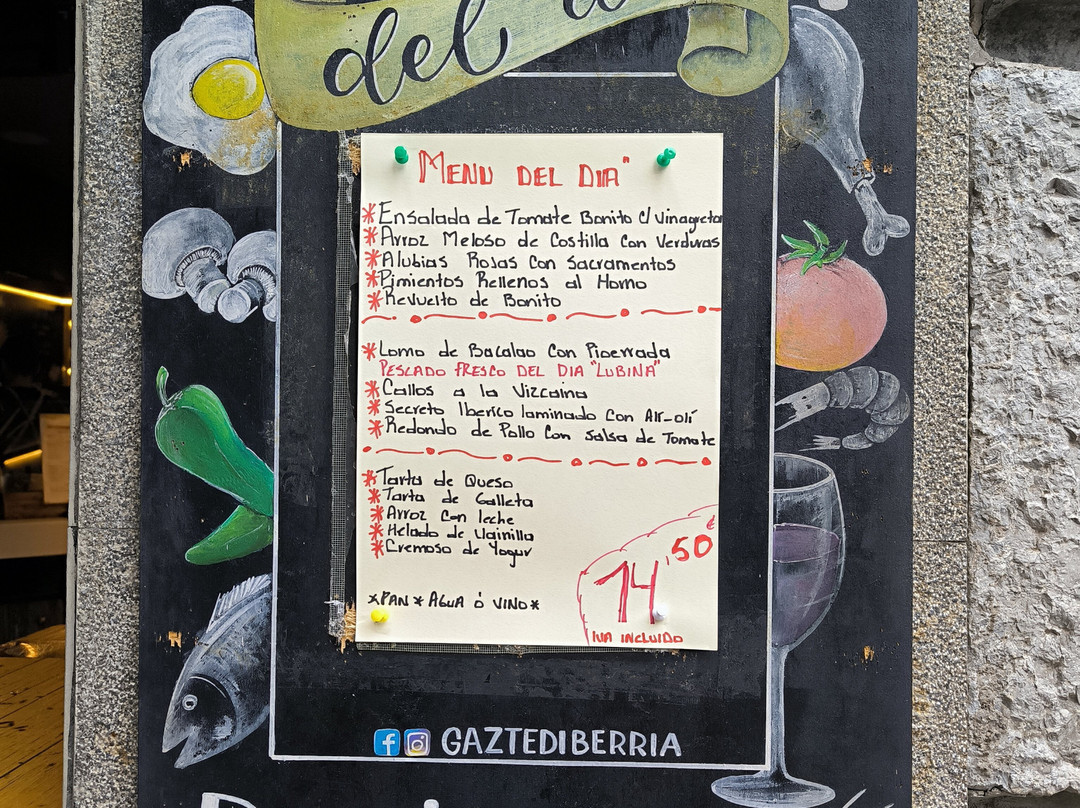 del
MENU DEL DIA"
*Ensalada de Tomate Bonito c/ vinagreta
*Arroz Meloso de Costilla con Verduras
*Alubias Rojas con Sacramentos
*Pimientos Rellenos al Horno
*Revuelto de Bonito
*Lomo de Bacalao con Piperrada
PESCADO FRESCO DEL DIA "LUBINA"
*Callos a la Vizcaina
*Secreto Iberico laminado con Ali-olí
*Redondo de Pollo con Salsa de Tomate
*Tarta de Queso
*Tarta de Galleta
*Arroz con leche
*Helado de Vainilla
*Cremoso de Yogur
14,50 €
*PAN * AGUA ó VINO*
IVA INCLUIDO
GAZTEDIBERRIA